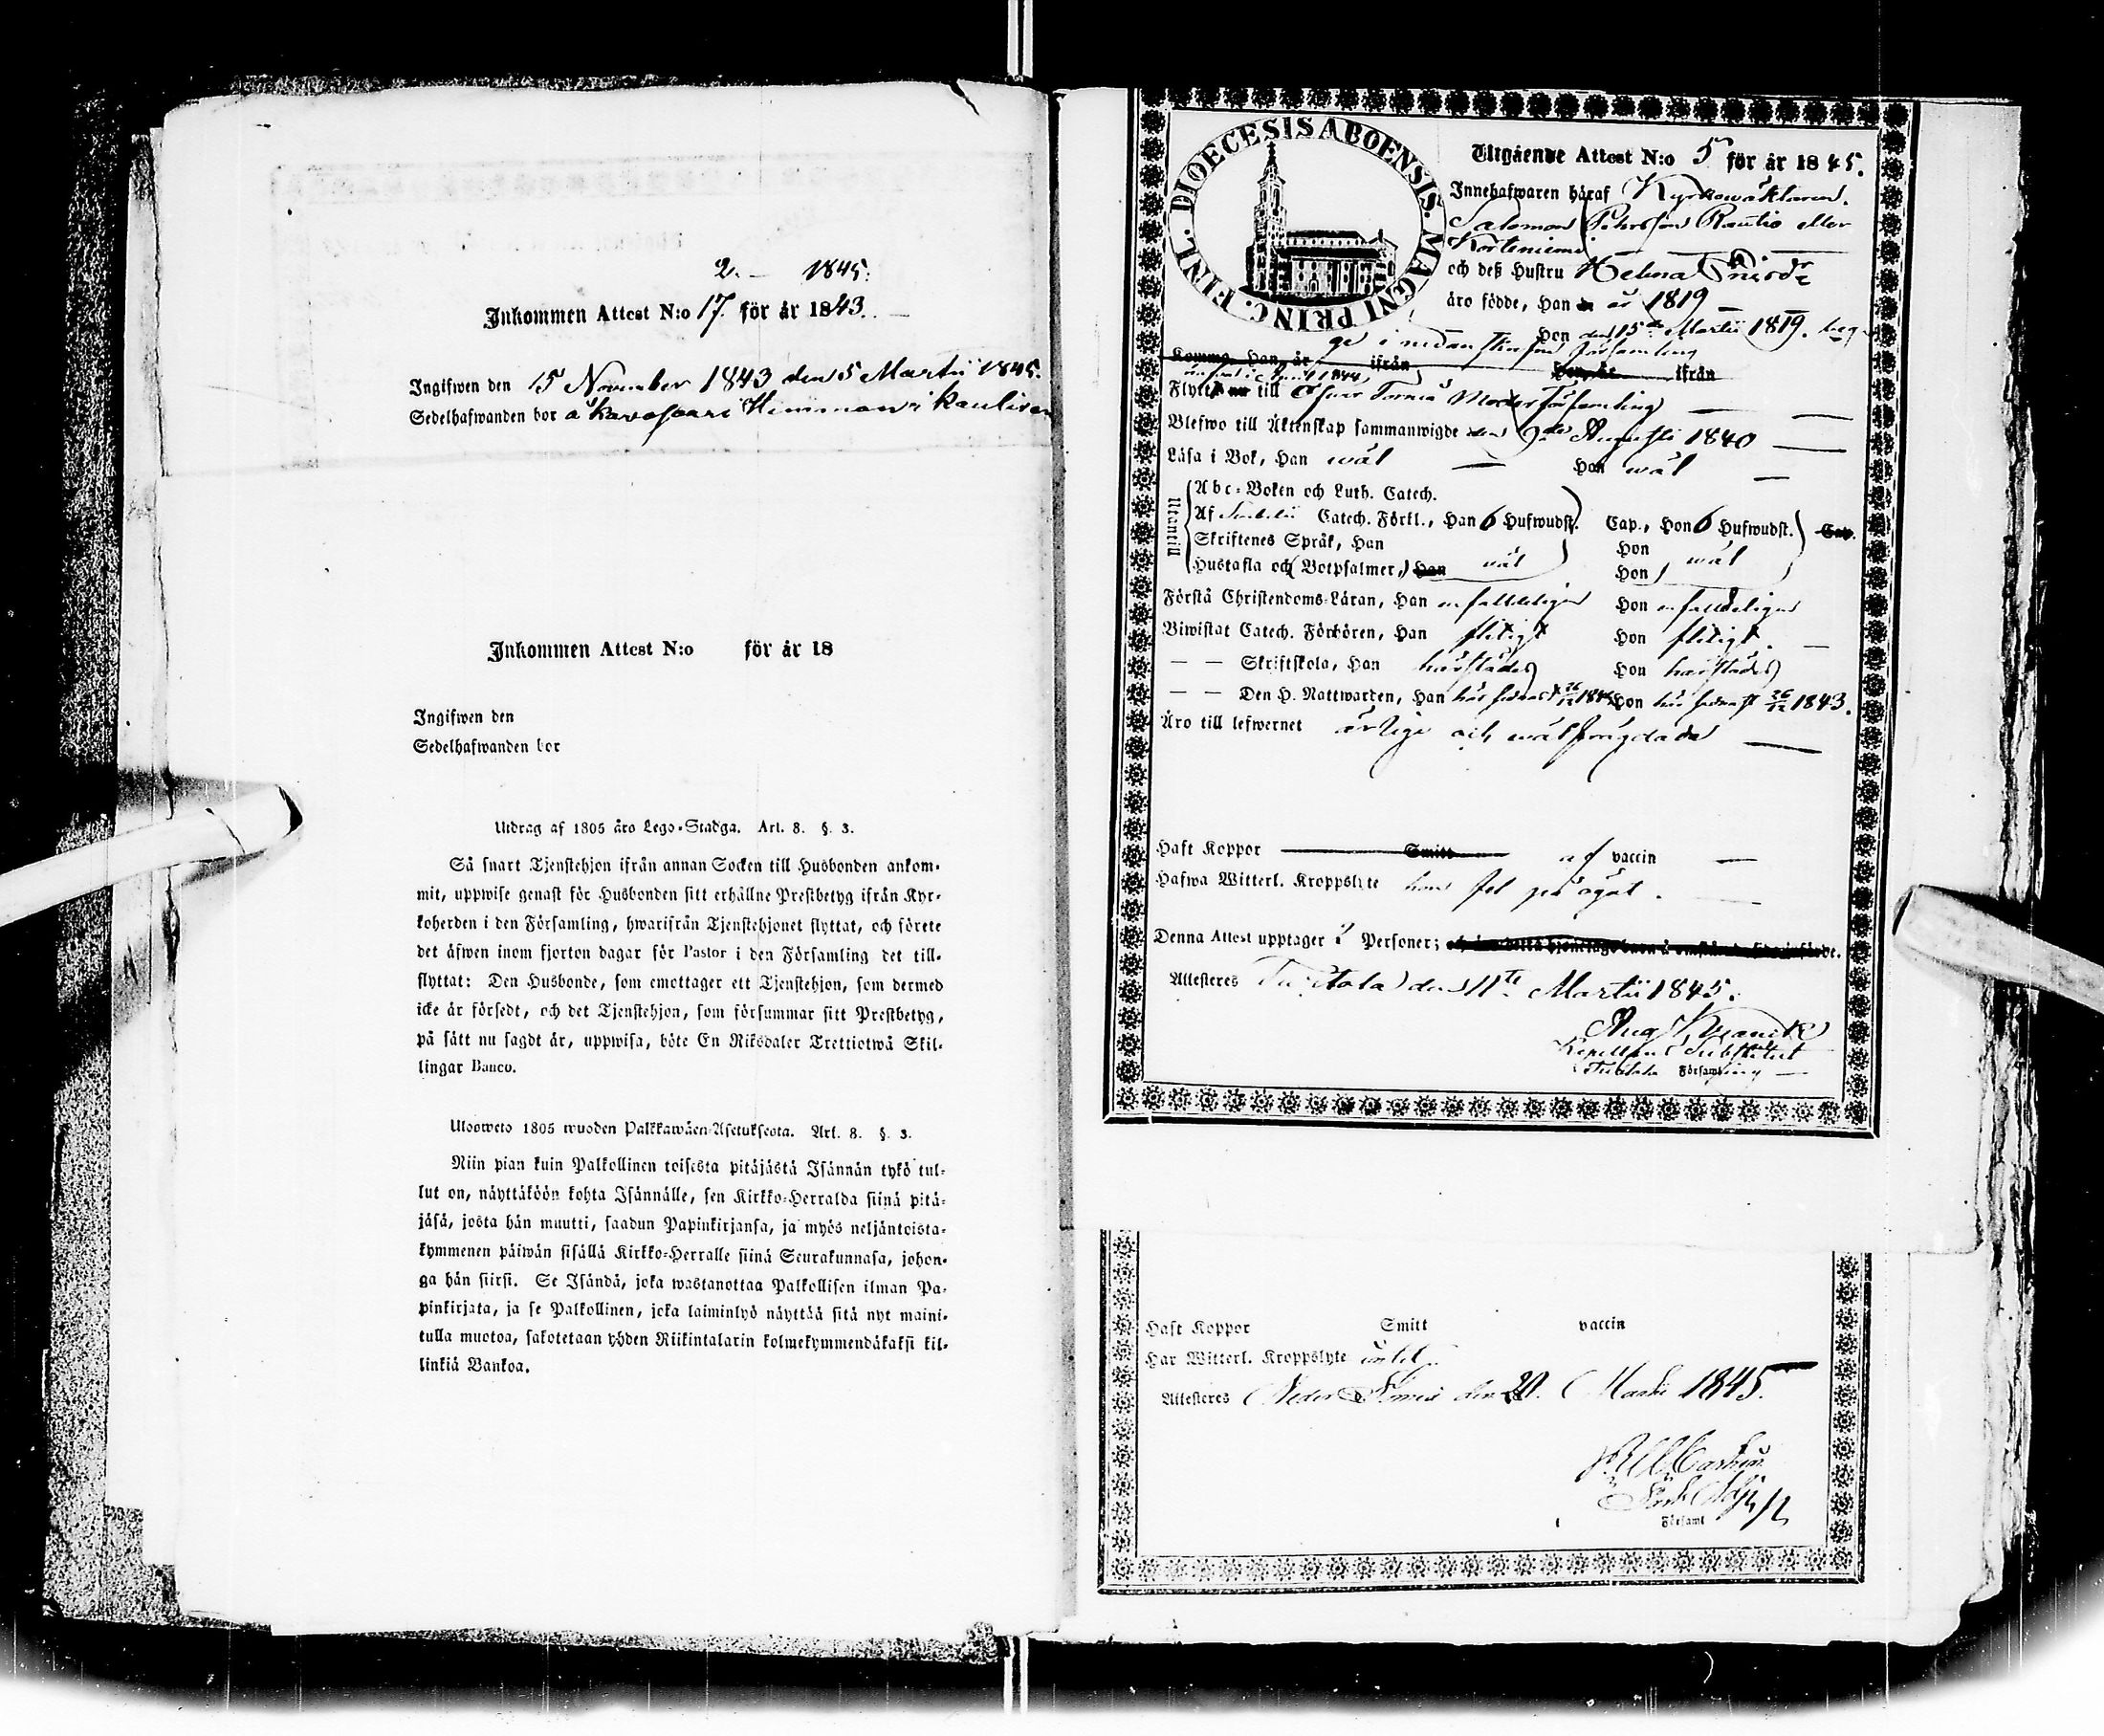 2. — 1845.
Inkommen Attest N:o 17. för år 1843. —
Ingifwen den 15 November 1843 den 5 Martii 1845.
Sedelhafwanden bor å Karesaari Hemman i
Inkommen Attest N:o för år 18
Ingifwen den
Sedelhafwanden bor
Utdrag af 1805 åro Lego-Stadga. Art. 8. §. 3.
Så snart Tjenstehjon ifrån annan Socken till Husbonden ankom-
mit, uppwise genast för Husbonden sitt erhållne Prestbetyg ifrån Kyr-
koherden i den Församling, hwarifrån Tjenstehjonet flyttat, och förete
det äfwen inom fjorton dagar för Pastor i den Församling det till-
flyttat: Den Husbonde, som emottager ett Tjenstehjon, som dermed
icke är försedt, och det Tjenstehjon, som försummar sitt Prestbetyg,
på sätt nu sagdt är, uppwisa, böte En Riksdaler Trettiotwå Skil-
lingar Banco.
Ulooweto 1805 wuoden Palkkawäen-Asetuksesta. Art. 8. §. 3.
Niin pian kuin Palkollinen toisesta pitäjästä Isännän tykö tul-
lut on, näyttäköön kohta Isännälle, sen Kirkko-Herralda siinä pitä-
jäsä, josta hän muutti, saadun Papinkirjansa, ja myös neljäntoista-
kymmenen päiwän sisällä Kirkko-Herralle siinä Seurakunnasa, johon-
ga hän siirsi. Se Isändä, joka wastanottaa Palkollisen ilman Pa-
pinkirjata, ja se Palkollinen, joka laiminlyö näyttää sitä nyt maini-
tulla muotoa, sakotetaan yhden Riikintalarin kolmekymmendäkaksi kil-
linkiä Bankoa.
DIOECESIS ABOENSIS. MAGNI PRINC. FINL.
Utgående Attest N:o 5 för år 1845.
Innehafwaren häraf Kyrkowäktaren
Salomon Petersson Rautio eller
Korteniemi
och deß Hustru Helena
äro födde, Han år 1819 —
Hon den 15de Martii 1819.
Komme, Han, år ifrån Hon, år ifrån
Flytta till Öfver Torneå Moder församling
Blefwo till Äktenskap sammanwigde den 9de Augusti 1840
Läsa i Bok, Han wäl — Hon wäl —
Utantill
Abc-Boken och Luth. Catech.
Af Catech. Förkl., Han 6 Hufwudst. Cap., Hon 6 Hufwudst. Cap.
Skriftenes Språk, Han Hon
Hustafla och Botpsalmer, Han wäl Hon wäl
Förstå Christendoms-Läran, Han enfalldeligen Hon enfalldeligen
Biwistat Catech. Förhören, Han flitigt Hon flitigt. —
— — Skriftskola, Han härstädes Hon härstädes
— — Den H. Nattwarden, Han här sednast 26/12 1843 Hon här sednast 26/12 1843.
Äro till lefwernet ärlige och wälfrägdade —
Haft Koppor Smitt af vaccin —
Hafwa Witterl. Kroppslyte hon fel på ögat.
Denna Attest upptager 2 Personer;
Attesteres Turtola den 11te Martii 1845.
Kapellans Substitut
Turtola Församling —
Haft Koppor Smitt vaccin
Har Witterl. Kroppslyte intet
Attesteres Neder Torneå den 20. Martii 1845.
Församl